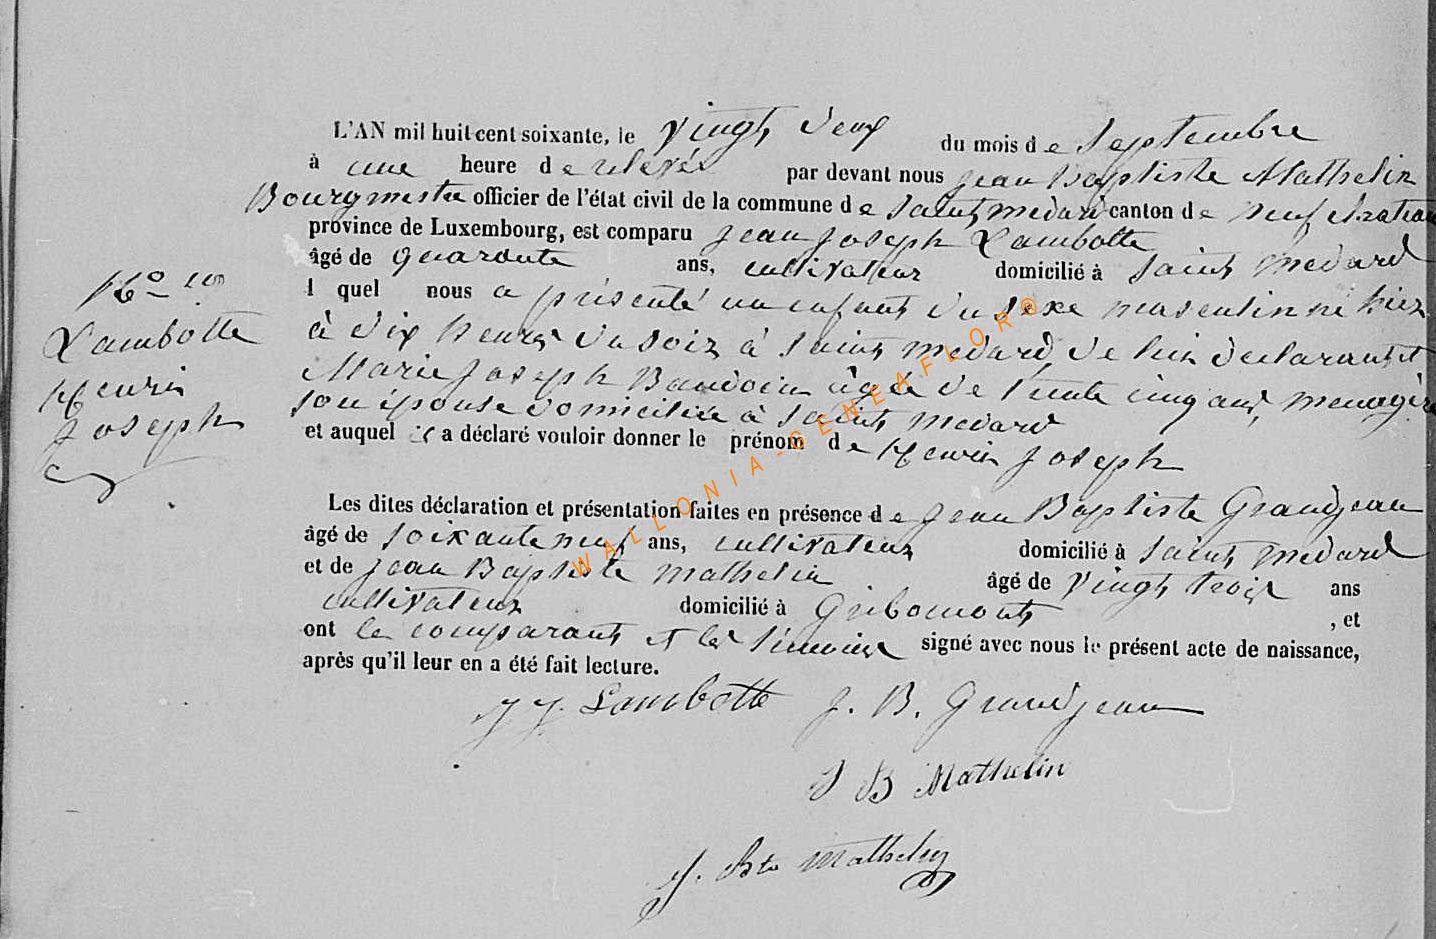 L'AN mil huit cent soixante, le vingt deux du mois de Septembre
à une heure de relevée par devant nous Jean Baptiste Mathelin
Bourgmestre officier de l'état civil de la commune de Saint médard canton de neufchateau
province de Luxembourg, est comparu Jean Joseph Lambotte
âgé de quarante ans, cultivateur domicilié à Saint médard
l quel nous a présenté un enfant du sexe masculin né hier
à dix heures du soir à Saint médard de lui déclarant et
Marie Joseph Baudoin âgée de trente cinq ans, menagère
son épouse domiciliée à Saint médard
et auquel il a déclaré vouloir donner le prénom de Henri Joseph
N° 10
Lambotte
Henri
Joseph
Les dites déclaration et présentation faites en présence de Jean Baptiste Grandjean
âgé de soixante neuf ans, cultivateur domicilié à Saint médard
et de Jean Baptiste mathelin âgé de vingt trois ans
cultivateur domicilié à Gribomont , et
ont le comparant et les témoins signé avec nous le présent acte de naissance,
après qu'il leur en a été fait lecture.
JJ. Lambotte J. B. Grandjean
J B Mathelin
J. Bte Mathelin
WALLONIA-GENEAFLOR©